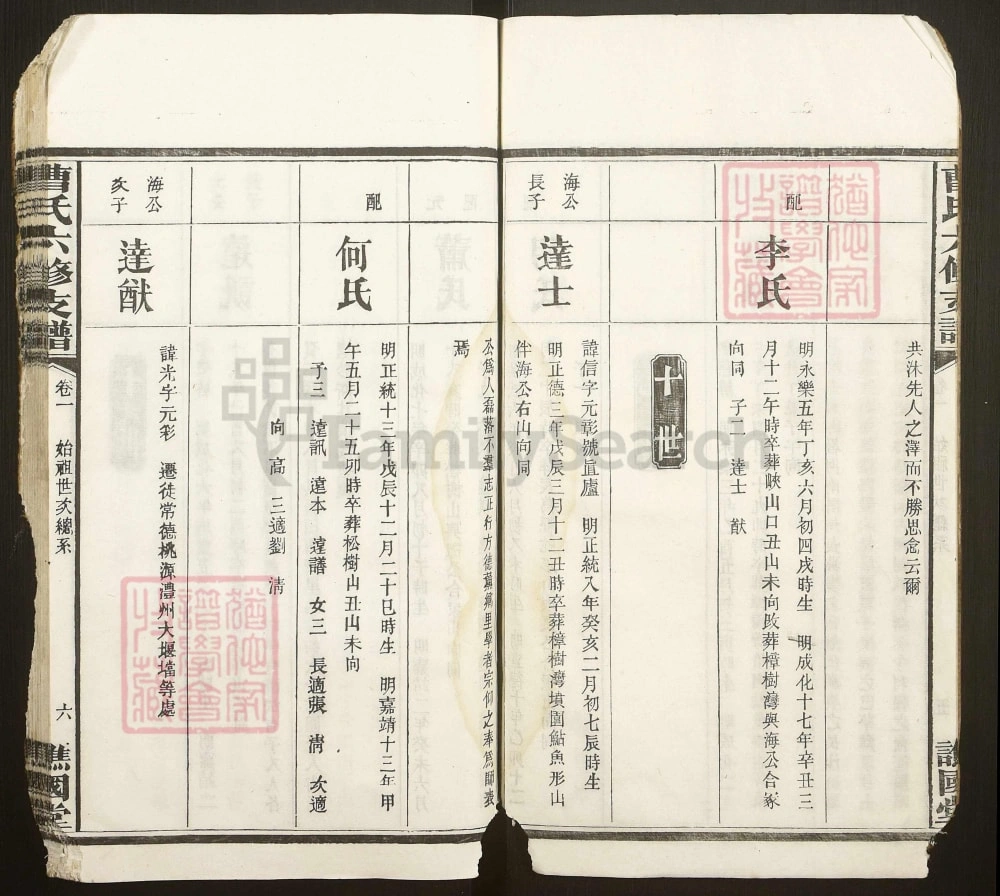 共沐先人之澤而不勝思念云爾
配
李氏
明永樂五年丁亥六月初四戌時生 明成化十七年辛丑三
月十二午時卒葬峽山口丑山未向改葬樟樹灣與海公合冢
向同 子二 達士 猷
十世
海公
長子
達士
諱信字元彰號直廬 明正統入年癸亥二月初七辰時生
明正德三年戊辰三月十二丑時卒葬樟樹灣墳園鮎魚形山
伴海公右山向同
公爲人磊落不羣志正行方德薰鄉里學者宗仰之奉爲師表
焉
配
何氏
明正統十三年戊辰十二月二十巳時生 明嘉靖十三年甲
午五月二十五卯時卒葬松樹山丑山未向
子三 遠訊 遠本 遠譜 女三 長適張 淸 次適
向 高 三適劉 淸
海公
次子
達猷
諱光字元彩 遷徒常德桃源澧州大堰壋等處
曹氏六修支譜
卷一 始祖世次總系
六
譙國堂
FamilySearch